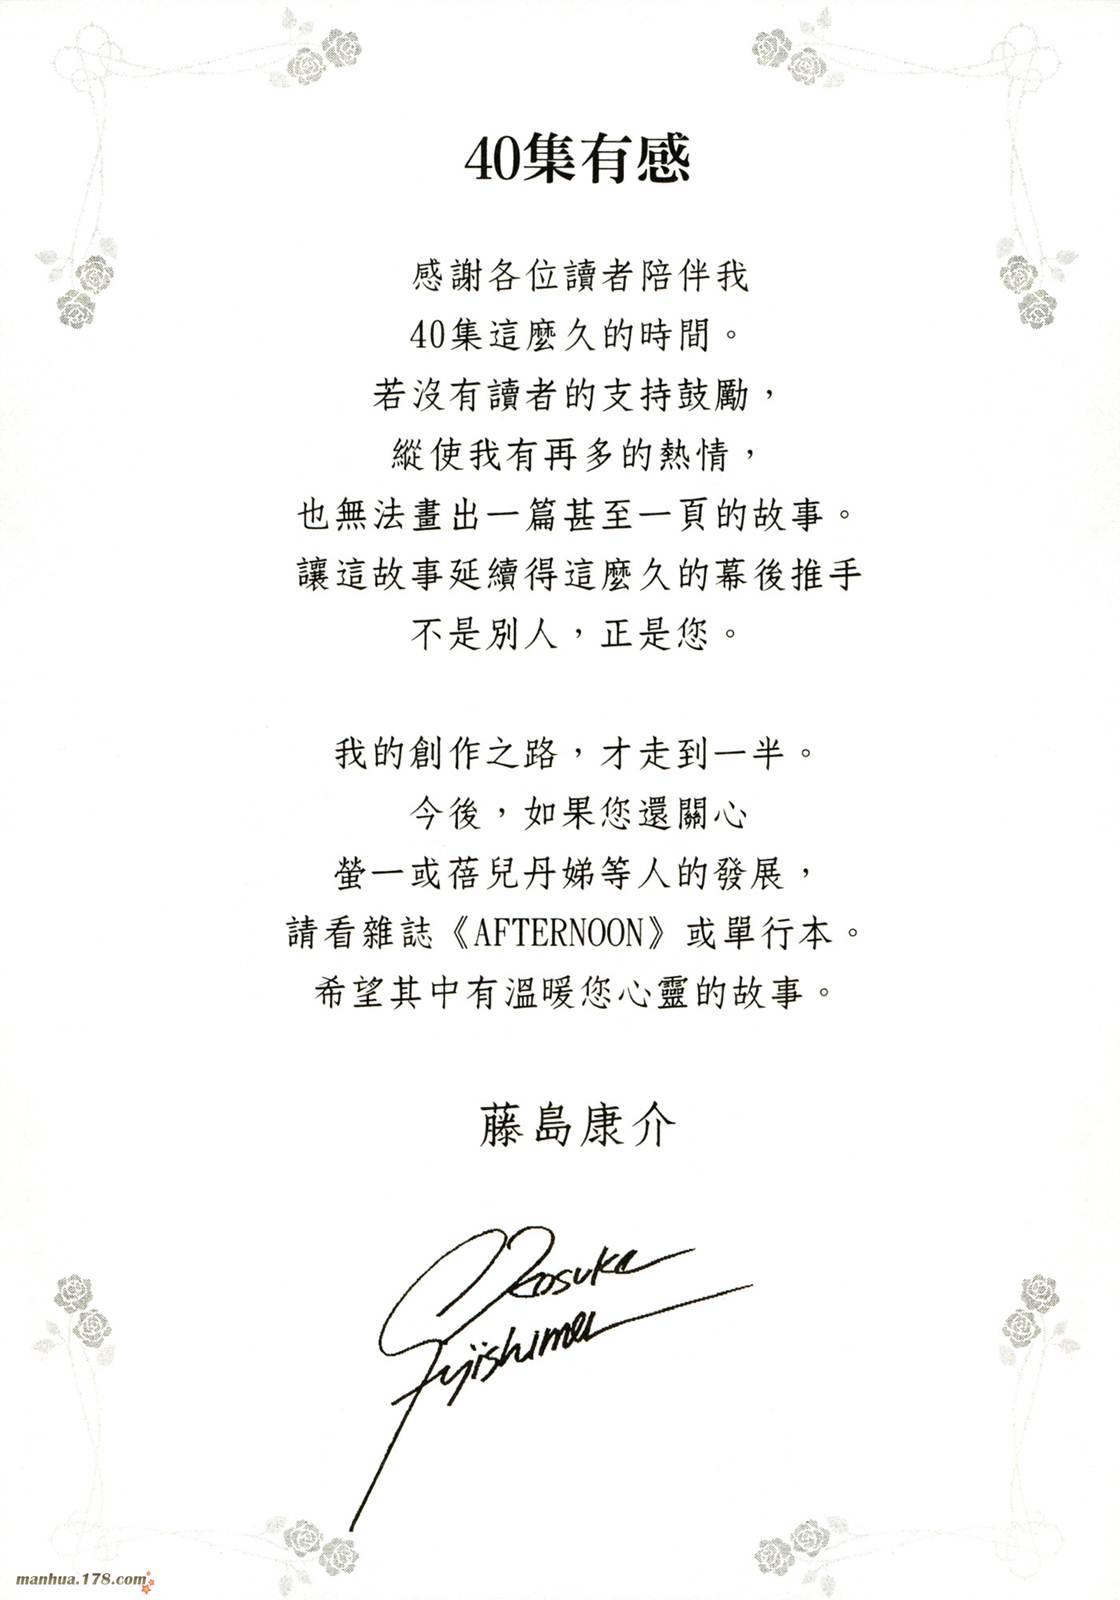 40集有感
感謝各位讀者陪伴我
40集這麼久的時間。
若沒有讀者的支持鼓勵，
縱使我有再多的熱情，
也無法畫出一篇甚至一頁的故事。
讓這故事延續得這麼久的幕後推手
不是別人，正是您。
我的創作之路，才走到一半。
今後，如果您還關心
螢一或蓓兒丹娣等人的發展，
請看雜誌《AFTERNOON》或單行本。
希望其中有溫暖您心靈的故事。
藤島康介
Kosuke
Fujishima
manhua.178.com